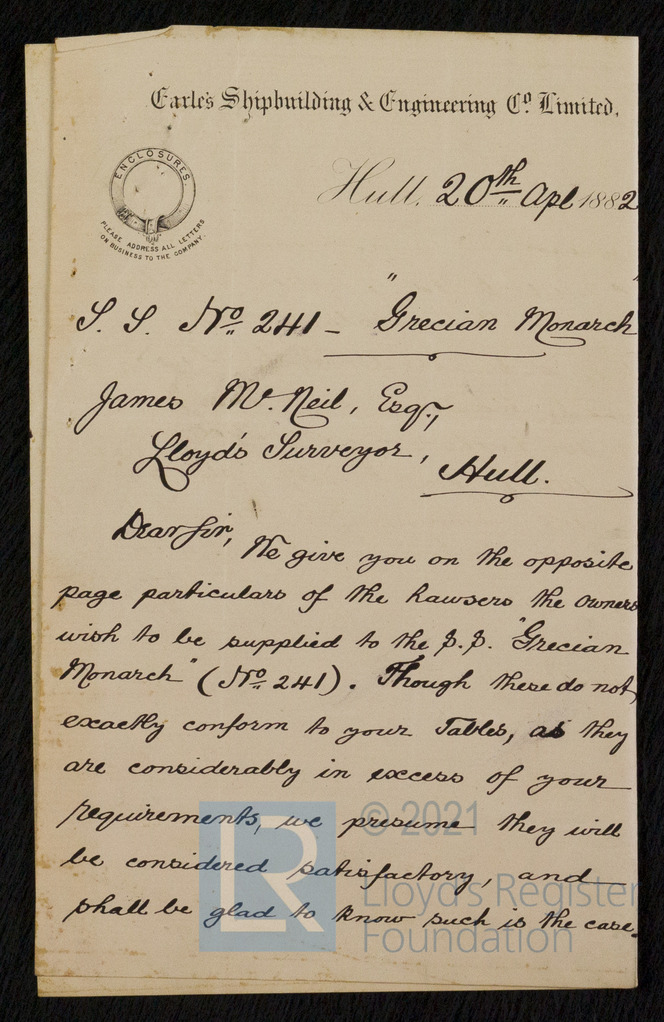 Earle's Shipbuilding & Engineering Co. Limited,
Hull, 20th Apl 1882
ENCLOSURES.
PLEASE ADDRESS ALL LETTERS
ON BUSINESS TO THE COMPANY.
S. S. No. 241 - "Grecian Monarch"
James McNeil, Esq.,
Lloyd's Surveyor,
Hull.
Dear Sir,
We give you on the opposite
page particulars of the hawsers the owners
wish to be supplied to the S.S. "Grecian
Monarch" (No. 241). Though these do not
exactly conform to your Tables, as they
are considerably in excess of your
requirements, we presume they will
be considered satisfactory, and
shall be glad to know such is the case.
LR
© 2021
Lloyd's Register
Foundation